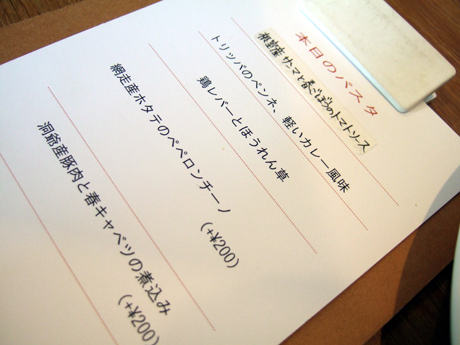 本日のパスタ
釧路産サンマと春ごぼうのトマトソース
トリッパのペンネ、軽いカレー風味
鶏レバーとほうれん草
網走産ホタテのペペロンチーノ
(+¥200)
洞爺産豚肉と春キャベツの煮込み
(+¥200)